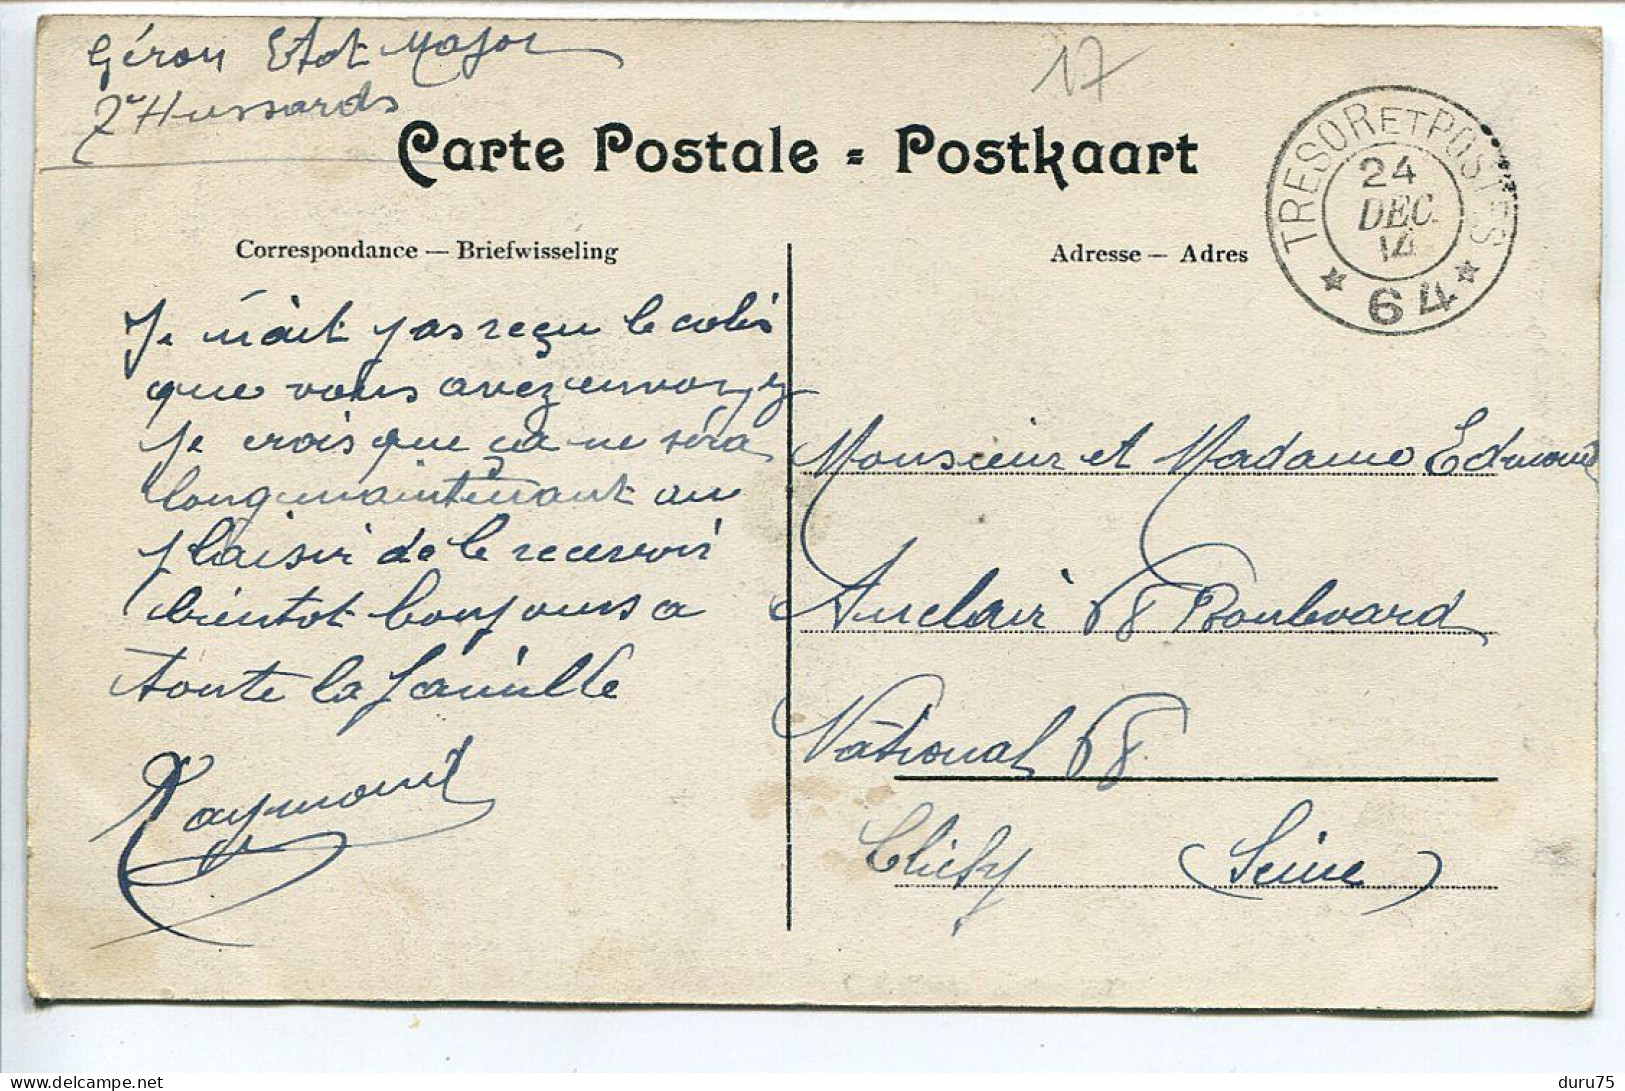 Géron Etat Major
2e Hussards
17
Carte Postale = Postkaart
TRESOR ET POSTES
24
DEC.
14
* 64 *
Correspondance — Briefwisseling
Adresse — Adres
Je n'ait pas reçu le colis
que vous avez envoyez
je crois que ça ne sera
long maintenant au
plaisir de le recevoir
bientot bonjours a
toute la famille
Raymond
Monsieur et Madame Edmond
Auclair 68 Boulevard
National 68
Clichy (Seine)
delcampe.net
duru75